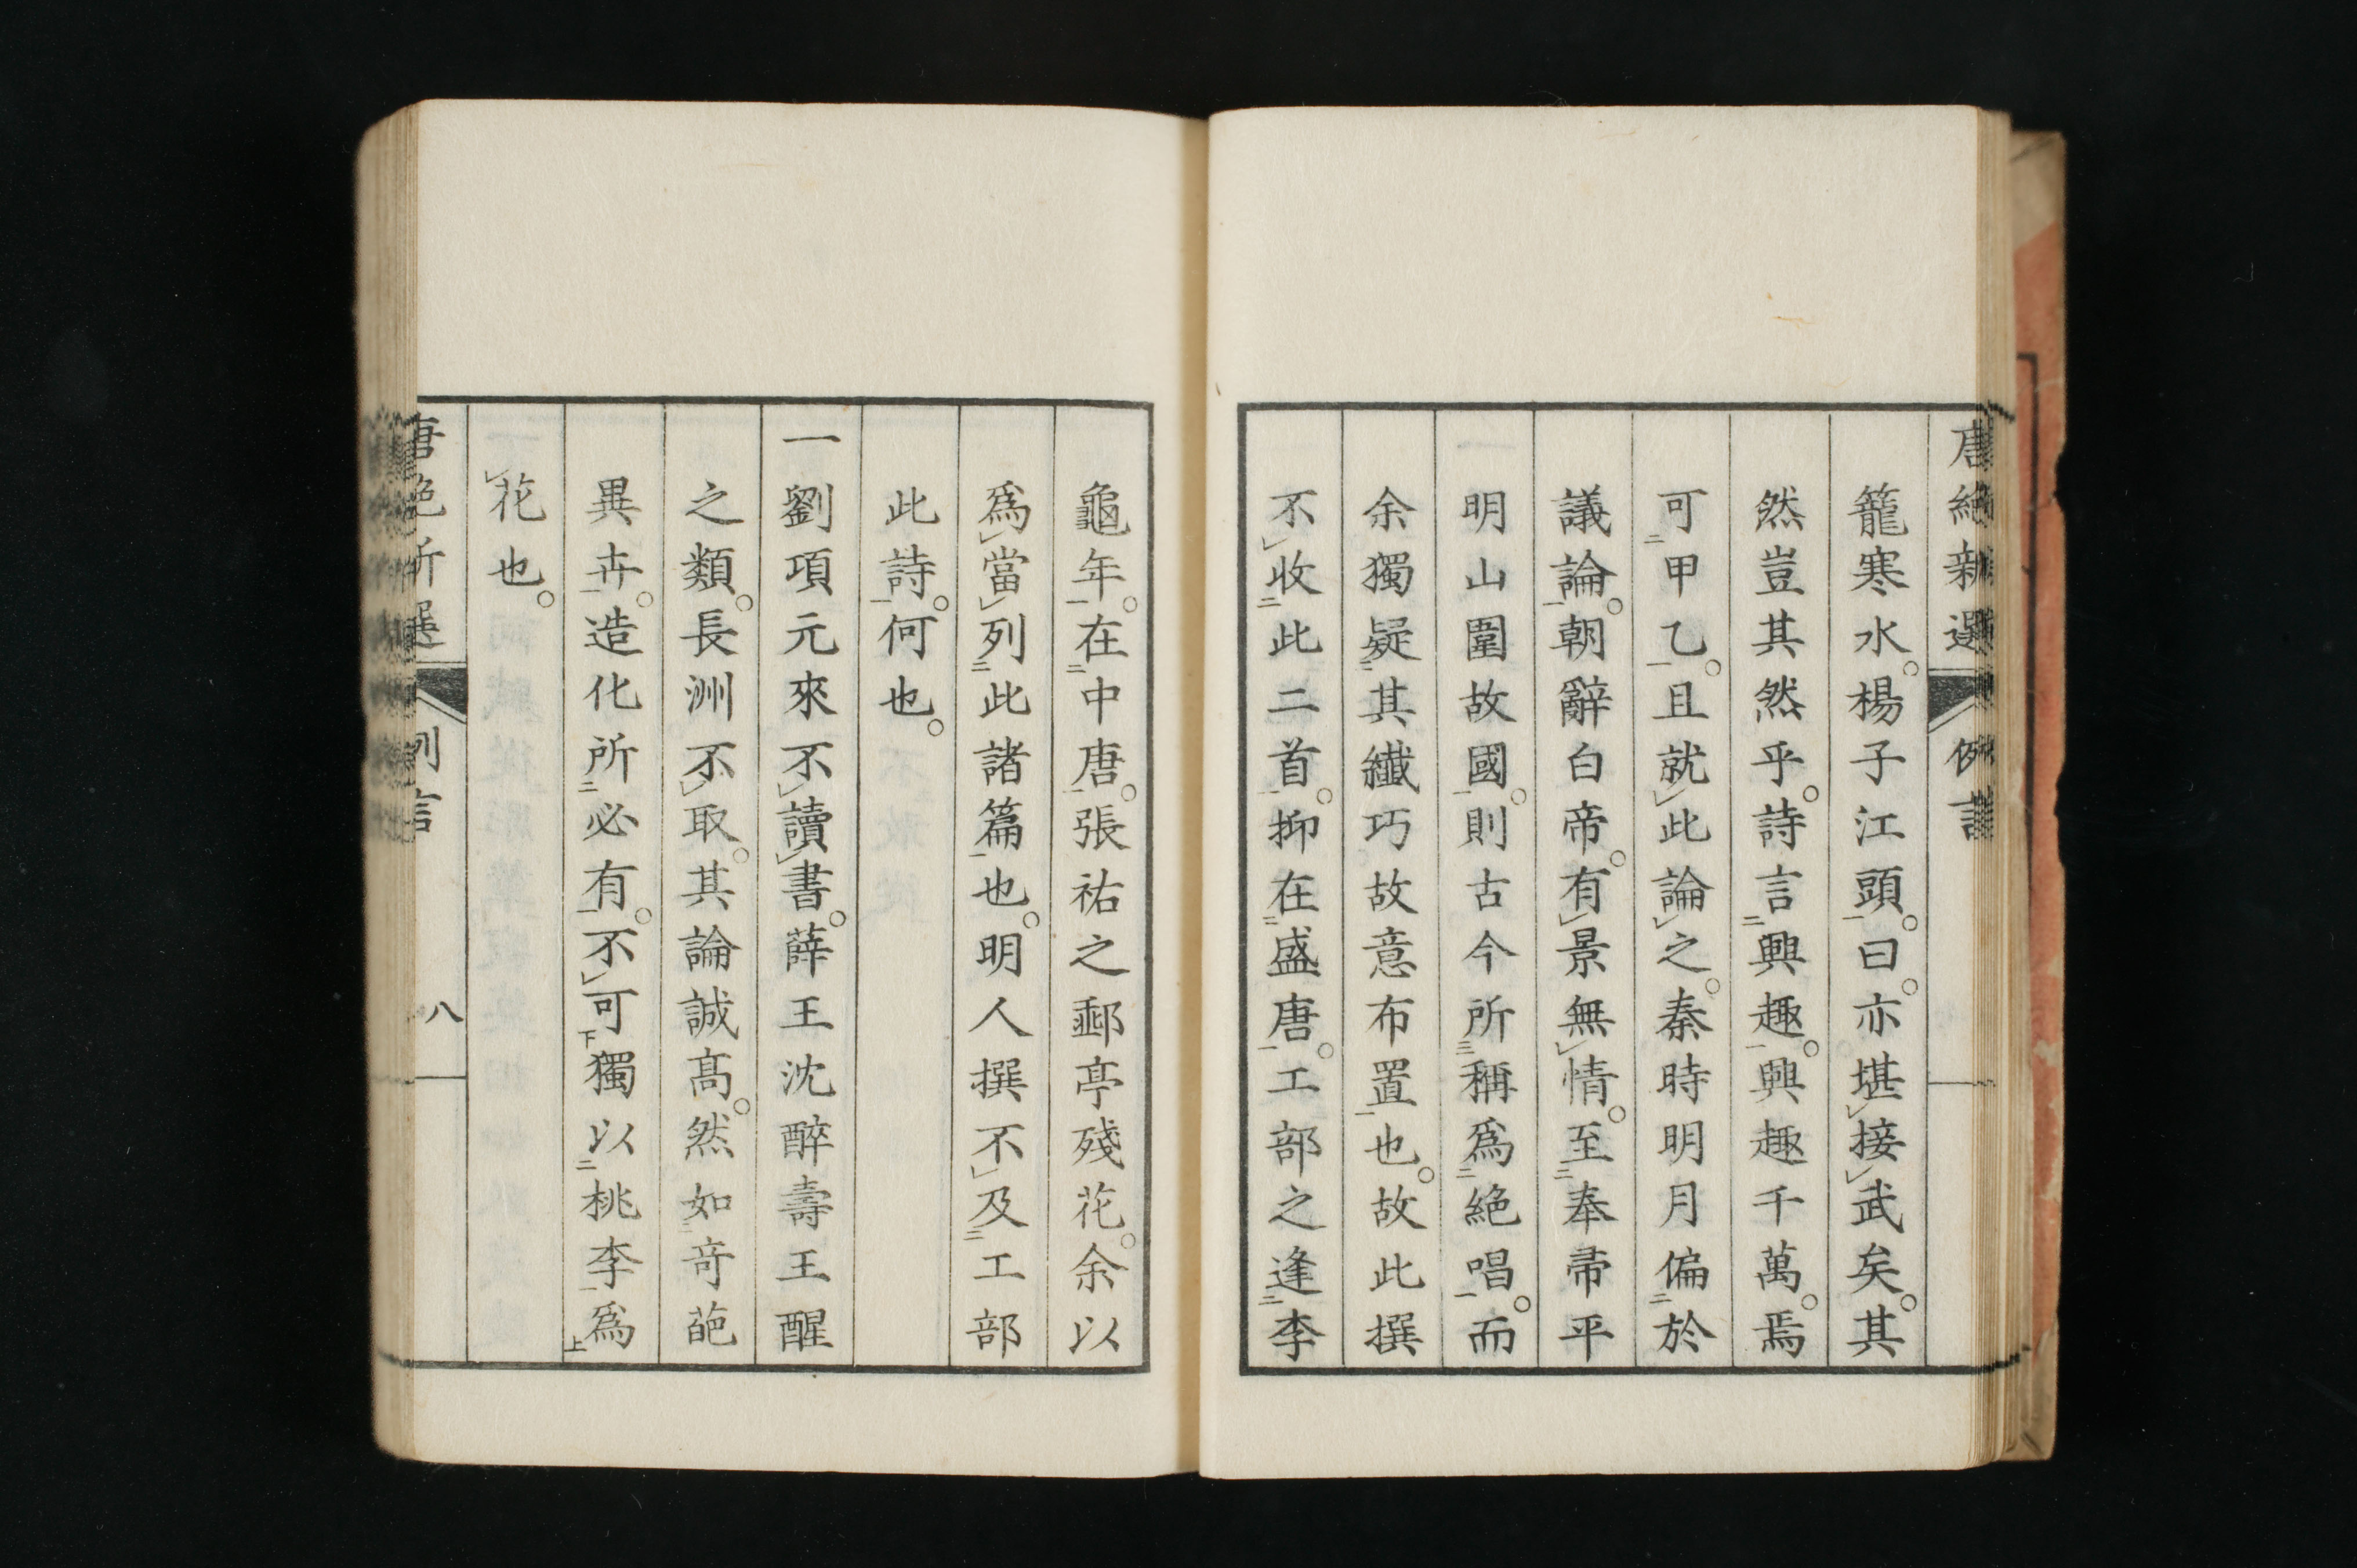 唐絶新選 例言
籠寒水。楊子江頭。曰。亦堪接武矣。其
然豈其然乎。詩言興趣。興趣千萬。焉
可甲乙。且就此論之。秦時明月偏於
議論。朝辭白帝。有景無情。至奉帚平
明山圍故國。則古今所稱爲絶唱。而
余獨疑其纎巧故意布置也。故此撰
不收此二首。抑在盛唐。工部之逢李
龜年。在中唐。張祐之郵亭殘花。余以
爲當列此諸篇也。明人撰不及工部
此詩。何也。
一劉項元來不讀書。薛王沈醉壽王醒
之類。長洲不取。其論誠高。然如奇葩
異卉。造化所必有。不可獨以桃李爲
花也。
唐絶新選 例言 八